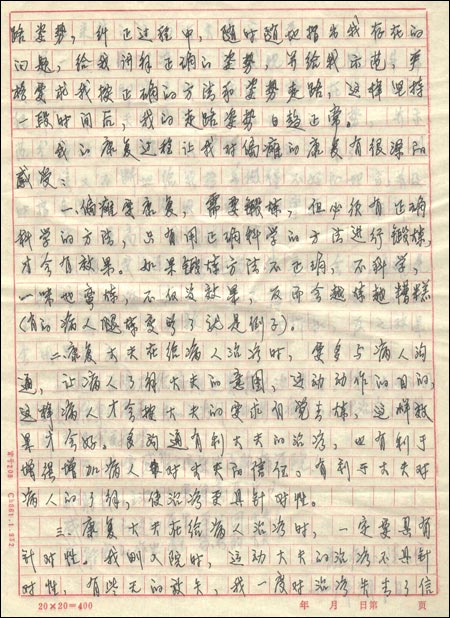 路姿势,纠正过程中,随时随地指出我存在的
问题,给我讲解正确的姿势,并给我示范,严
格要求我按正确的方法和姿势走路。这样坚持
一段时间后,我的走路姿势日趋正常。
我的康复过程让我对偏瘫的康复有很深的
感受:
一.偏瘫要康复,需要锻炼,但必须有正确
科学的方法,只有用正确科学的方法进行锻炼,
才会有效果。如果锻炼方法不正确,不科学,
一味地蛮炼,不但没效果,反而会越炼越糟糕
(有的病人腿炼变形了就是例子)。
二.康复大夫在给病人治疗时,要多与病人沟
通,让病人了解大夫的意图,运动动作的目的,
这样病人才会按大夫的要求自觉去炼,这样效
果才会好。良沟通有利大夫的治疗,也有利于
增强增加病人对大夫的信任。有利于大夫对
病人的了解,使治疗更具针对性。
三.康复大夫在给病人治疗时,一定要具有
针对性。我刚入院时,运动大夫的治疗不具针
对性,有些无的放矢,我一度对治疗失去了信
20×20=400
年 月 日第 页